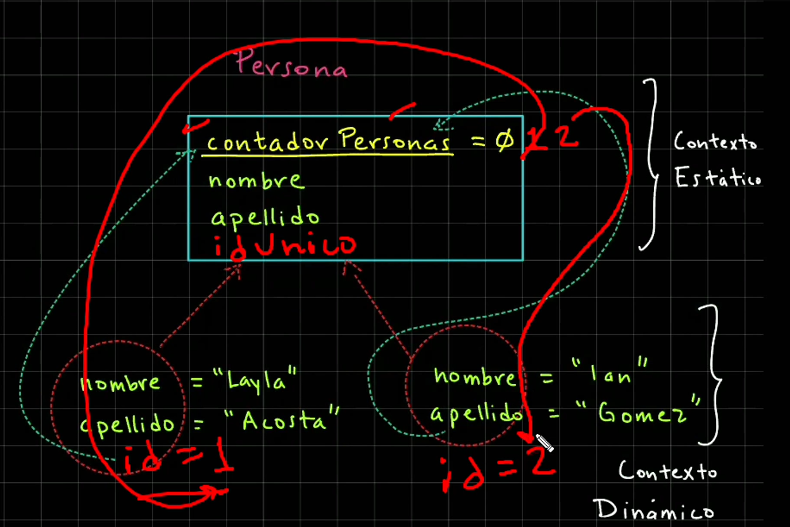 Persona
contador Personas = Ø 1 2
nombre
apellido
id Unico
Contexto
Estático
nombre = "Layla"
apellido = "Acosta"
id = 1
nombre = "Ian"
apellido = "Gomez"
id = 2
Contexto
Dinámico